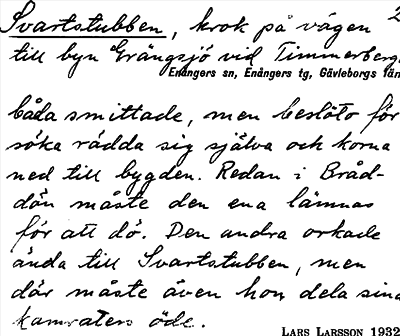 Svartstubben, krok på vägen 2
till byn Grängsjö vid Timmerberg
Enångers sn, Enångers tg, Gävleborgs län
båda smittade, men beslöto för
söka rädda sig själva och korna
ned till bygden. Redan i Bråd-
dön måste den ena lämnas
för att dö. Den andra orkade
ända till Svartstubben, men
där måste även hon dela sina
kamraters öde.
LARS LARSSON 1932